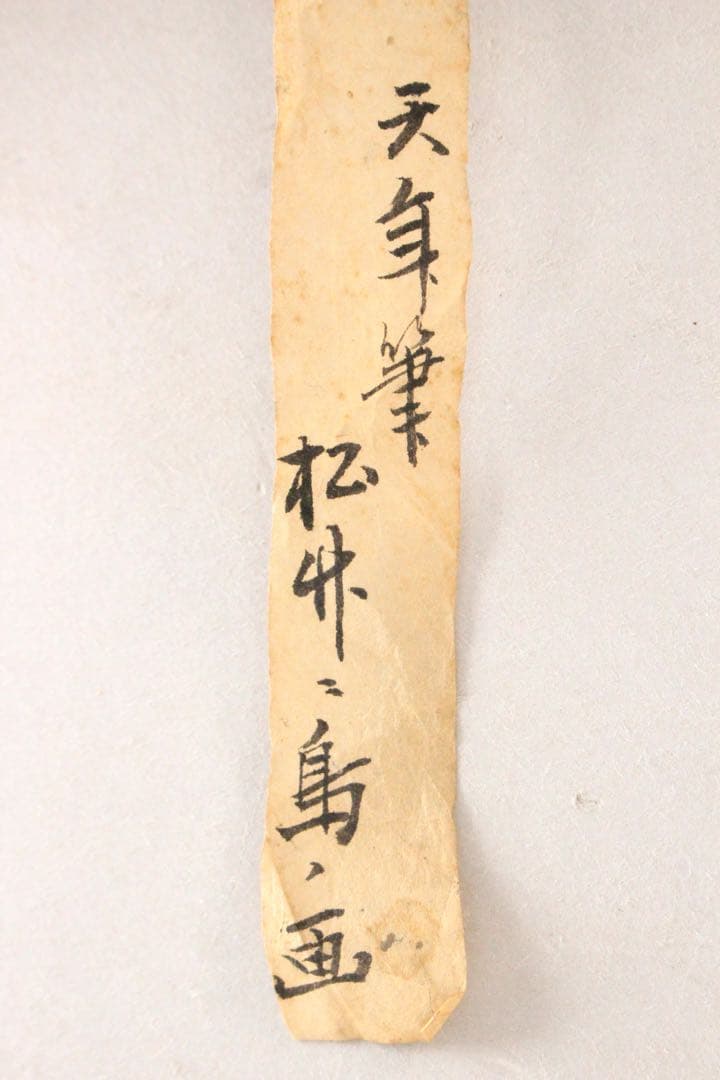 天年筆
松竹ニ鳥ノ画